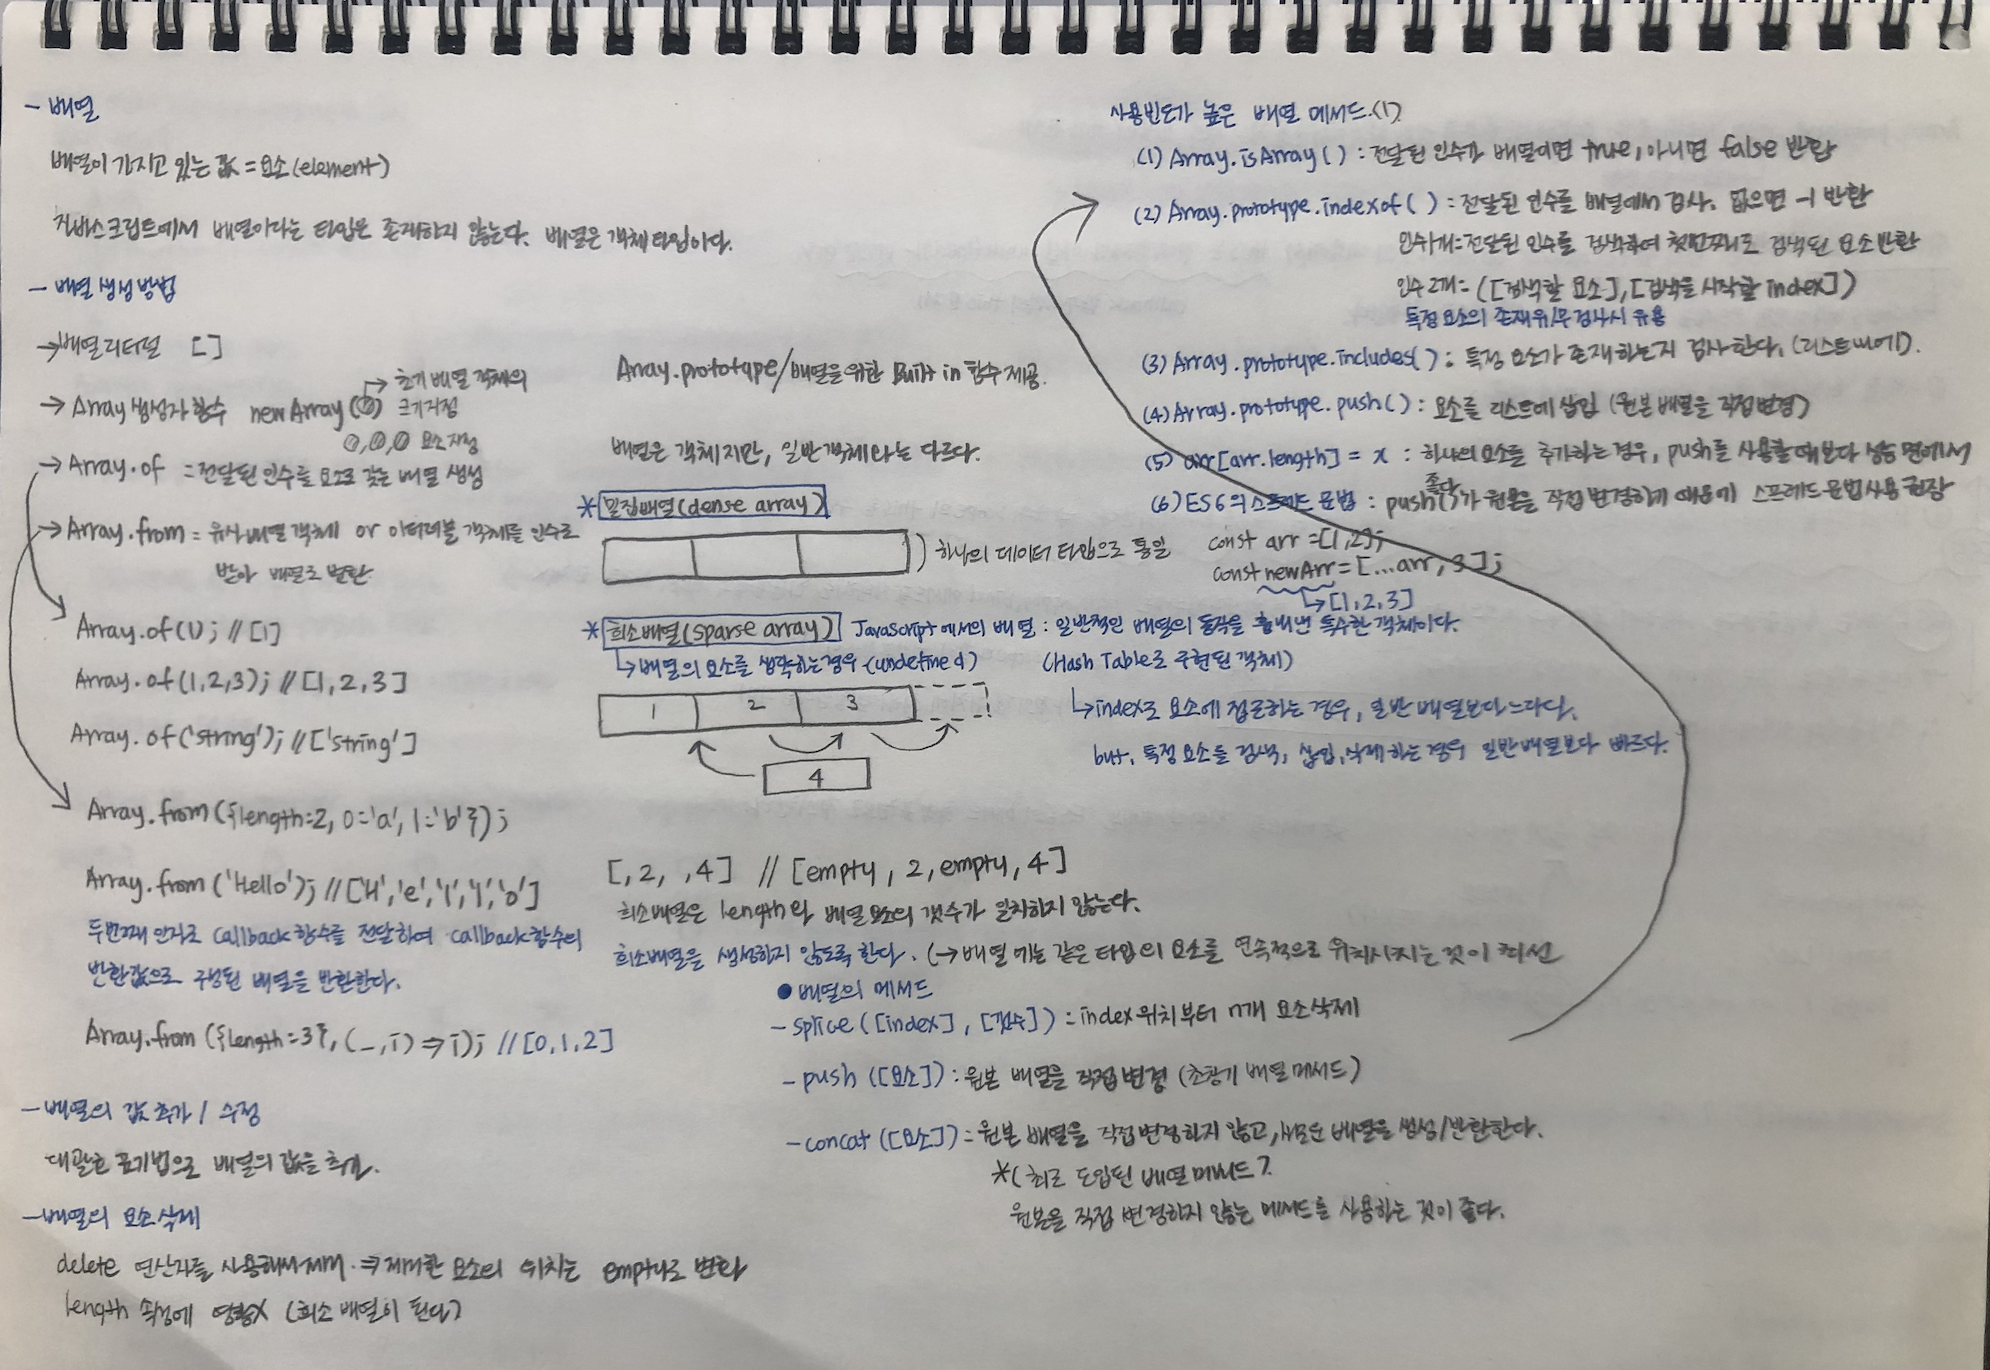 - 배열
배열이 가지고 있는 값 = 요소(element)
자바스크립트에서 배열이라는 타입은 존재하지 않는다. 배열은 객체타입이다.
- 배열 생성 방법
→ 배열리터럴 [ ]
→ Array 생성자 함수 new Array(0) → 초기 배열 객체의 크기지정
0,0,0 요소지정
→ Array.of = 전달된 인수를 요소로 갖는 배열 생성
→ Array.from = 유사배열 객체 or 이터러블 객체를 인수로
받아 배열로 반환
Array.of(1); // [1]
Array.of(1,2,3); // [1,2,3]
Array.of('string'); // ['string']
Array.from({length=2, 0='a', 1='b'});
Array.from('Hello'); // ['H','e','l','l','o']
두번째 인자로 callback함수를 전달하여 callback함수의
반환값으로 구성된 배열을 반환한다.
Array.from({length=3}, (_,i) ⇒ i); // [0,1,2]
- 배열의 값 추가 / 수정
대괄호 표기법으로 배열의 값을 추가.
- 배열의 요소삭제
delete 연산자를 사용해서 제거. ⇒ 제거한 요소의 위치는 empty로 변화
length 속성에 영향X (희소 배열이 된다)
Array.prototype/배열을 위한 Built in 함수 제공.
배열은 객체지만, 일반객체와는 다르다.
* 밀집배열(dense array)
) 하나의 데이터 타입으로 통일
* 희소배열(sparse array) JavaScript에서의 배열 : 일반적인 배열의 동작을 흉내낸 특수한 객체이다.
↳ 배열의 요소를 생략하는경우 (undefined) (Hash Table로 구현된 객체)
1 2 3
4
↳ index로 요소에 접근하는 경우, 일반 배열보다 느리다.
but, 특정 요소를 검색, 삽입, 삭제하는 경우 일반배열보다 빠르다.
[,2, ,4] // [empty, 2, empty, 4]
희소배열은 length와 배열요소의 갯수가 일치하지 않는다.
희소배열을 생성하지 않도록 한다. (→ 배열에는 같은 타입의 요소를 연속적으로 위치시키는 것이 최선
● 배열의 메서드
- splice([index], [갯수]) = index위치부터 n개 요소삭제
- push([요소]) : 원본 배열을 직접 변경 (초창기 배열메서드)
- concat([요소]) = 원본 배열을 직접변경하지 않고, 새로운 배열을 생성/반환한다.
*(최근 도입된 배열 메서드)
원본을 직접 변경하지 않는 메서드를 사용하는 것이 좋다.
사용빈도가 높은 배열 메서드.(1)
(1) Array.isArray() : 전달된 인수가 배열이면 true, 아니면 false 반환
(2) Array.prototype.indexof( ) : 전달된 인수를 배열에서 검사. 없으면 -1 반환
인수1개=전달된 인수를 검색하여 첫번째로 검색된 요소반환
인수2개= ([검색할 요소],[검색을 시작할 index])
특정요소의 존재유/무 검사시 유용
(3) Array.prototype.includes( ) : 특정 요소가 존재하는지 검사한다. (리스트 내에).
(4) Array.prototype.push( ) : 요소를 리스트에 삽입 (원본 배열을 직접변경)
(5) arr[arr.length] = x : 하나의 요소를 추가하는 경우, push를 사용할 때보다 성능 면에서
좋다
(6) ES6의 스프레드 문법 : push()가 원본을 직접 변경하기 때문에 스프레드 문법사용 권장
const arr = [1,2];
const newArr = [...arr, 3];
↳ [1,2,3]